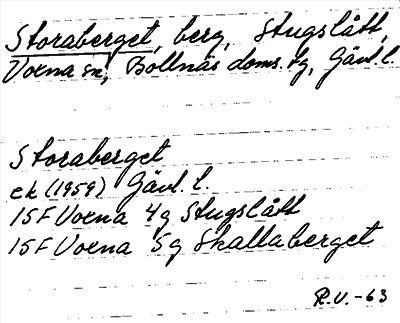 Storaberget, berg, Stugslått,
Voxna sn, Bollnäs doms. tg, Gävl. l.
Storaberget
ek (1959) Gävl. l.
15 F Voxna 4g Stugslått
15 F Voxna 5g Skallaberget
R.V. -63